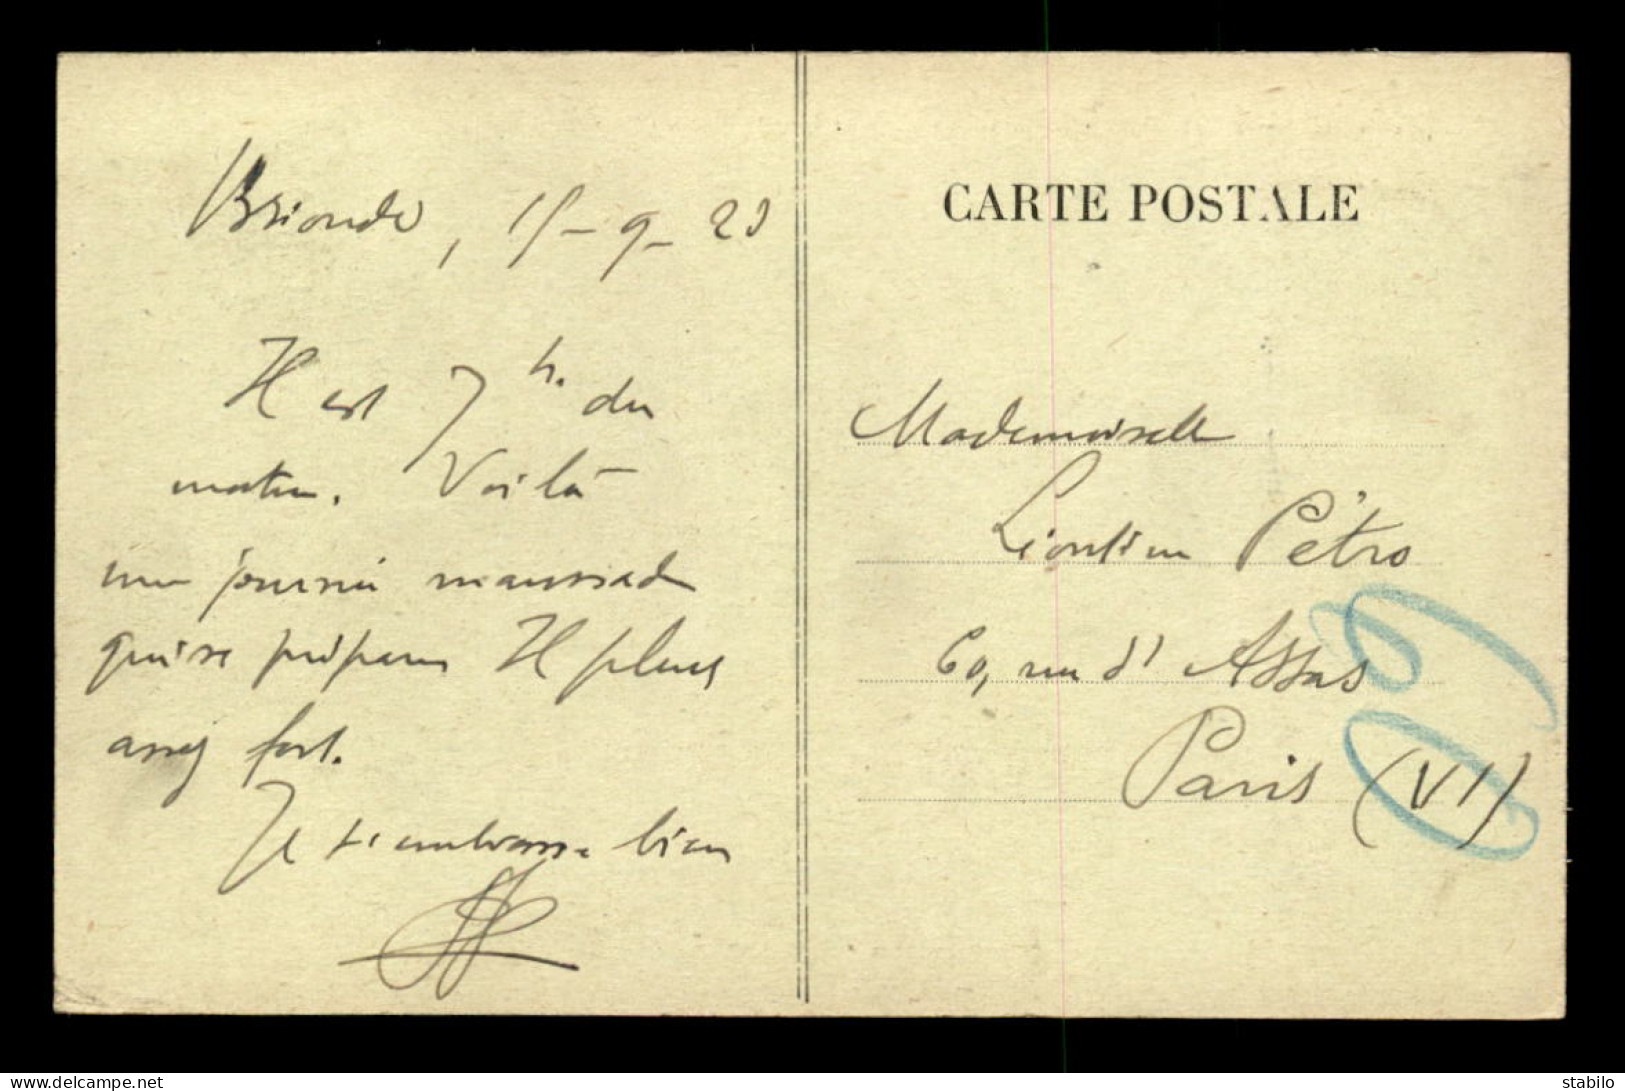 Brioude, 15-9-23
Il est 7 h. du
matin. Voilà
une journée maussade
qui se prépare. Il pleut
assez fort.
Je t'embrasse bien
CARTE POSTALE
Mademoiselle
Léontine Pétro
60, rue d'Assas
Paris (VI)
delcampe.net
stabilo